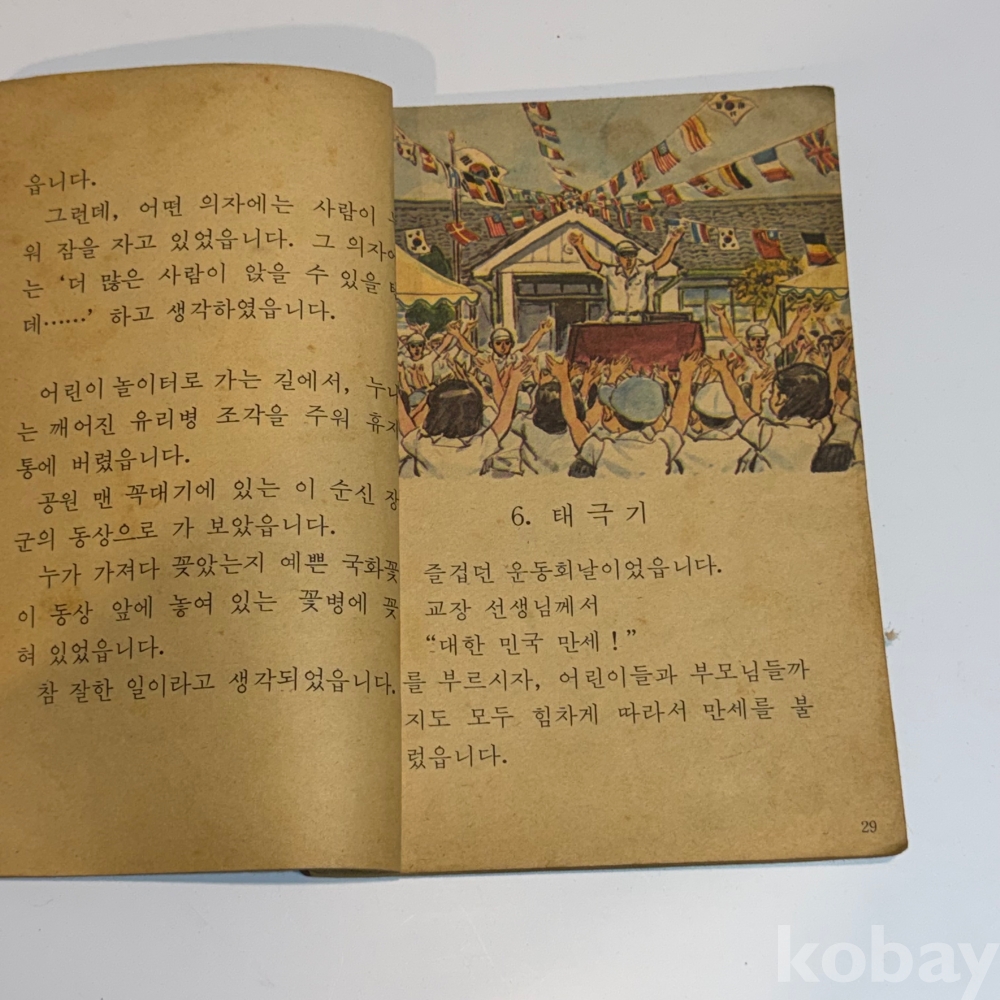 읍니다.
그런데, 어떤 의자에는 사람이
워 잠을 자고 있었읍니다. 그 의자에
는 ‘더 많은 사람이 앉을 수 있을
데……’ 하고 생각하였읍니다.
어린이 놀이터로 가는 길에서, 누나
는 깨어진 유리병 조각을 주워 휴지
통에 버렸읍니다.
공원 맨 꼭대기에 있는 이 순신 장
군의 동상으로 가 보았읍니다.
누가 가져다 꽂았는지 예쁜 국화꽃
이 동상 앞에 놓여 있는 꽃병에 꽂
혀 있었읍니다.
참 잘한 일이라고 생각되었읍니다.
6. 태극기
즐겁던 운동회날이었읍니다.
교장 선생님께서
“대한 민국 만세!”
를 부르시자, 어린이들과 부모님들까
지도 모두 힘차게 따라서 만세를 불
렀읍니다.
29
kobay